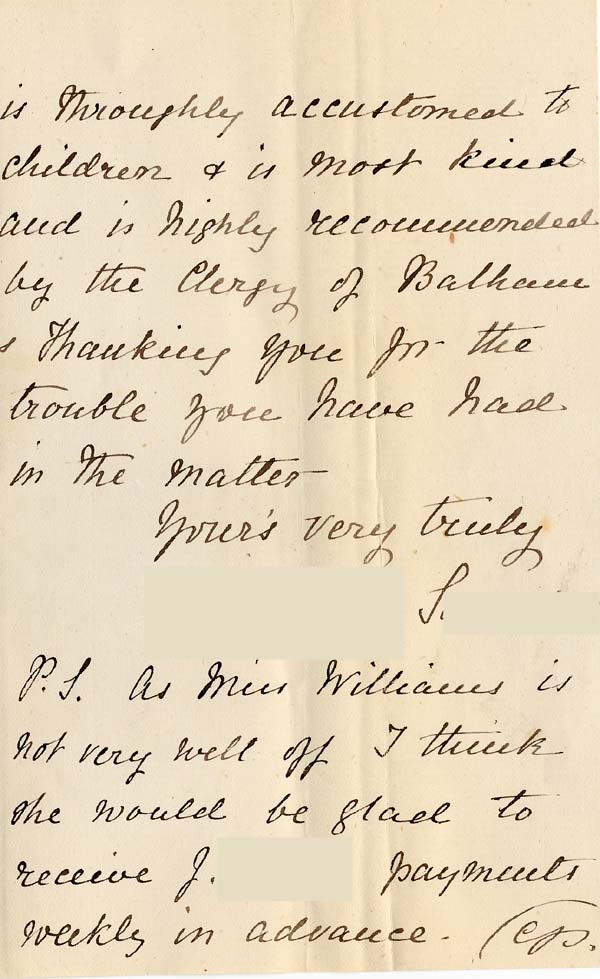 is throughly accustomed to
children & is most kind
and is highly recommended
by the Clergy of Balham
Thanking you for the
trouble you have had
in the matter
Your's very truly
S.
P.S. As Miss Williams is
not very well off I think
she would be glad to
receive J. payments
weekly in advance.